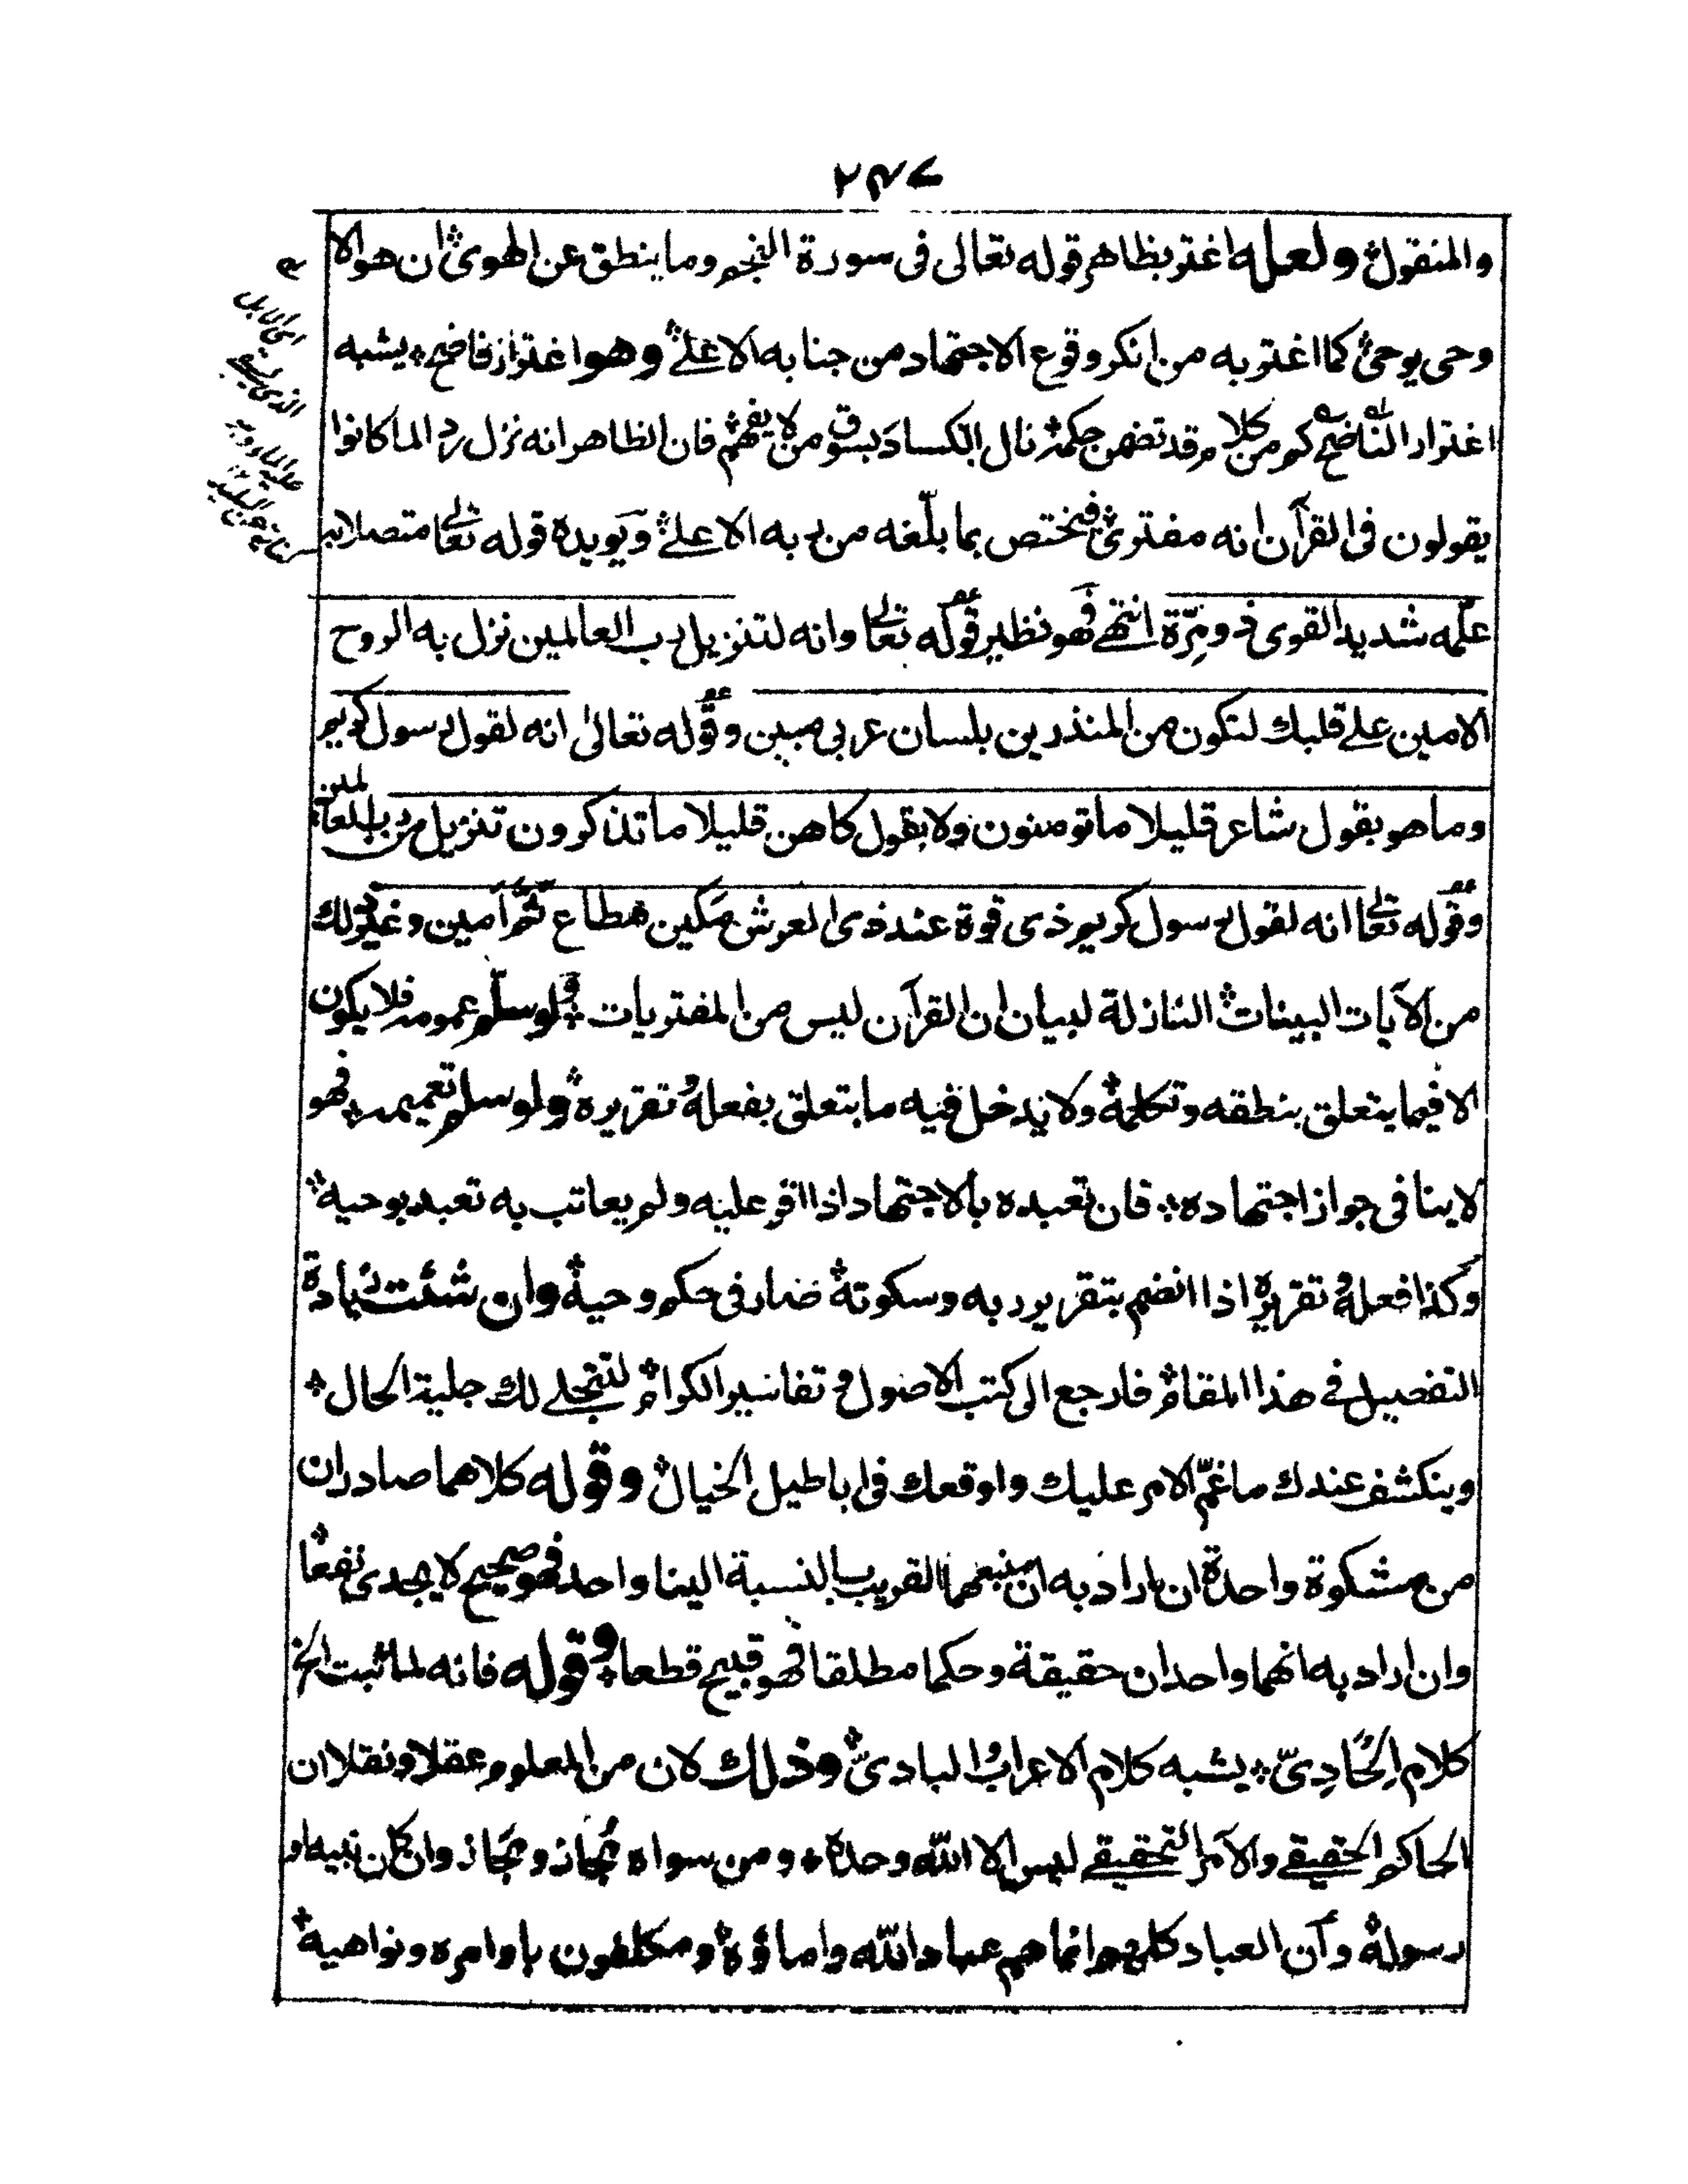 ٢٤٧
والمنقول ولعله اغتر بظاهر قوله تعالى فى سورة النجم وما ينطق عن الهوى ان هو الا
وحى يوحى كما اغتر به من انكر وقوع الاجتهاد من جنابه الاعلے وهو اغترار فاضح يشبه
اغترار الناضح كم من كلام قد تضمن حكمة نال الكساد بسوق من لا يفهم فان الظاهر انه نزل رد الما كانوا
يقولون فى القرآن انه مفترى فيختص بما بلّغه من ربه الاعلے ويويده قوله تعالى متصلا به
علّمه شديد القوى ذو مِرّة انتهے فهو نظير قوله تعالى وانه لتنزيل رب العالمين نزل به الروح
الامين علے قلبك لتكون من المنذرين بلسان عربى مبين وقوله تعالىٰ انه لقول رسول كريم
وما هو بقول شاعر قليلا ما تومنون ولا بقول كاهن قليلا ما تذكرون تنزيل من رب العلمين
وقوله تعالى انه لقول رسول كريم ذى قوة عند ذى العرش مكين مطاع ثَمّ امين وغير ذلك
من الآيات البينات النازلة لبيان ان القرآن ليس من المفتريات ولو سلّم عمومه فلا يكون
الا فيما يتعلق بنطقه وتكلمه ولا يدخل فيه ما يتعلق بفعله وتقريره ولو سلم تعميمه فهو
لا ينافى جواز اجتهاده فان تعبده بالاجتهاد اذا اقر عليه ولم يعاتب به تعبد بوحيه
وكذا فعله وتقريره اذا انضم بتقرير ربه وسكوته صار فى حكم وحيه وان شئت زيادة
التفصيل فے هذا المقام فارجع الى كتب الاصول وتفاسير الكرام لتتجلے لك جلية الحال
وينكشف عندك ما غمّ الامر عليك واوقعك فى اباطيل الخيال وقوله كلاهما صادران
من مشكوة واحدة ان اراد به ان منبعهما القريب بالنسبة الينا واحد فهو صحيح لا يجدى نفعا
وان اراد به انهما واحدان حقيقة وحكما مطلقا فهو قبيح قطعا وقوله فانه لما ثبت الخ
كلام اِلحَادِىّ يشبه كلام الاعراب البادىّ وذلك لان من المعلوم عقلا ونقلا ان
الحاكم الحقيقے والآمر التحقيقے ليس الا الله وحده ومن سواه مُجاز ومَجاز وان كان نبيه او
رسوله وآن العباد كلهم انما هم عباد الله واماؤه ومكلفون باوامره ونواهيه